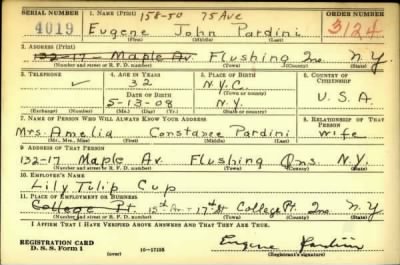 158-50 75 Ave
SERIAL NUMBER 1. NAME (Print) ORDER NUMBER
4019 Eugene John Pardini 3124
(First) (Middle) (Last)
2. ADDRESS (Print)
132-17 Maple Av. Flushing Qns N.Y.
(Number and street or R. F. D. number) (Town) (County) (State)
3. TELEPHONE 4. AGE IN YEARS 5. PLACE OF BIRTH 6. COUNTRY OF CITIZENSHIP
32 N.Y.C.
DATE OF BIRTH (Town or county)
5-13-08 N.Y. U.S.A.
(Exchange) (Number) (Mo.) (Day) (Yr.) (State or country)
7. NAME OF PERSON WHO WILL ALWAYS KNOW YOUR ADDRESS 8. RELATIONSHIP OF THAT PERSON
Mrs. Amelia Constance Pardini Wife
(Mr., Mrs., Miss) (First) (Middle) (Last)
9. ADDRESS OF THAT PERSON
132-17 Maple Av. Flushing Qns. N.Y.
(Number and street or R. F. D. number) (Town) (County) (State)
10. EMPLOYER'S NAME
Lily Tulip Cup
11. PLACE OF EMPLOYMENT OR BUSINESS
College Pt. 15th Av - 17th St College Pt. Qns N.Y.
(Number and street or R. F. D. number) (Town) (County) (State)
I AFFIRM THAT I HAVE VERIFIED ABOVE ANSWERS AND THAT THEY ARE TRUE.
REGISTRATION CARD
D. S. S. Form 1 (over) 16-17105 Eugene Pardini
(Registrant's signature)